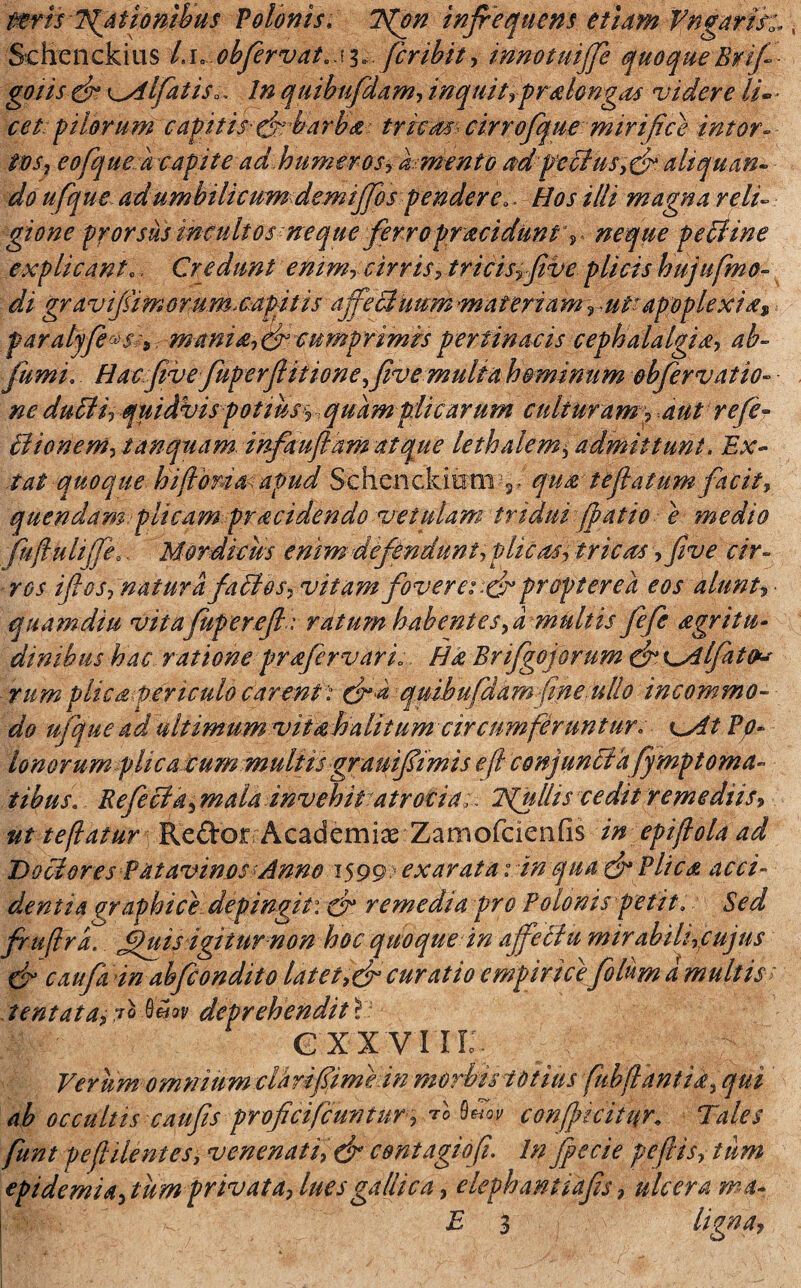 teris Nationibus Polonis. Non infrequens etiam Vngaris.
Schenckius l.1. obſervat. 13. ſcribit, innotuiſſe quoque Briſ-
goiis & Alſatis. In quibuſdam, inquit, prælongas videre li-
cet pilorum capitis & barbæ tricas cirroſque mirificè intor-
tos, eoſque à capite ad humeros, à mento ad pectus, & aliquan-
do uſque ad umbilicum demiſſos pendere. Hos illi magna reli-
gione prorsùs incultos neque ferro præcidunt, neque pectine
explicant. Credunt enim, cirris, tricis, ſive plicis hujuſmo-
di graviſsimorum capitis affectuum materiam, ut apoplexiæ,
paralyſeως, maniæ, & cumprimis pertinacis cephalalgiæ, ab-
ſumi. Hac ſive ſuperſtitione, ſive multa hominum obſervatio-
ne ducti, quidvis potiùs, quàm plicarum culturam, aut refe-
ctionem, tanquam infauſtam atque lethalem, admittunt. Ex-
tat quoque hiſtoria apud Schenckium, quæ teſtatum facit,
quendam plicam præcidendo vetulam tridui ſpatio è medio
ſuſtuliſſe. Mordicùs enim defendunt, plicas, tricas, ſive cir-
ros iſtos, naturâ factos, vitam fovere: & proptereà eos alunt,
quamdiu vita ſupereſt: ratum habentes, à multis ſeſe ægritu-
dinibus hac ratione præſervari. Hæ Briſgojorum & Alſato-
rum plicæ periculo carent: & à quibuſdam ſine ullo incommo-
do uſque ad ultimum vitæ halitum circumferuntur. At Po-
lonorum plica cum multis grauiſsimis eſt conjuncta ſymptoma-
tibus. Refecta, mala invehit atrocia. Nullis cedit remediis,
ut teſtatur Rector Academiæ Zamoſcienſis in epiſtola ad
Doctores Patavinos Anno 1599. exarata: in qua & Plicæ acci-
dentia graphicè depingit: & remedia pro Polonis petit. Sed
fruſtrà. Quis igitur non hoc quoque in affectu mirabili, cujus
& cauſa in abſcondito latet, & curatio empiricè ſolùm à multis
tentata, τὸ θεῖον deprehendit?
CXXVIII.
Verùm omnium clariſsimè in morbis totius ſubſtantiæ, qui
ab occultis cauſis proficiſcuntur, τὸ θεῖον conſpicitur. Tales
ſunt peſtilentes, venenati, & contagioſi. In ſpecie peſtis, tùm
epidemia, tùm privata, lues gallica, elephantiaſis, ulcera ma-
E 3 ligna,